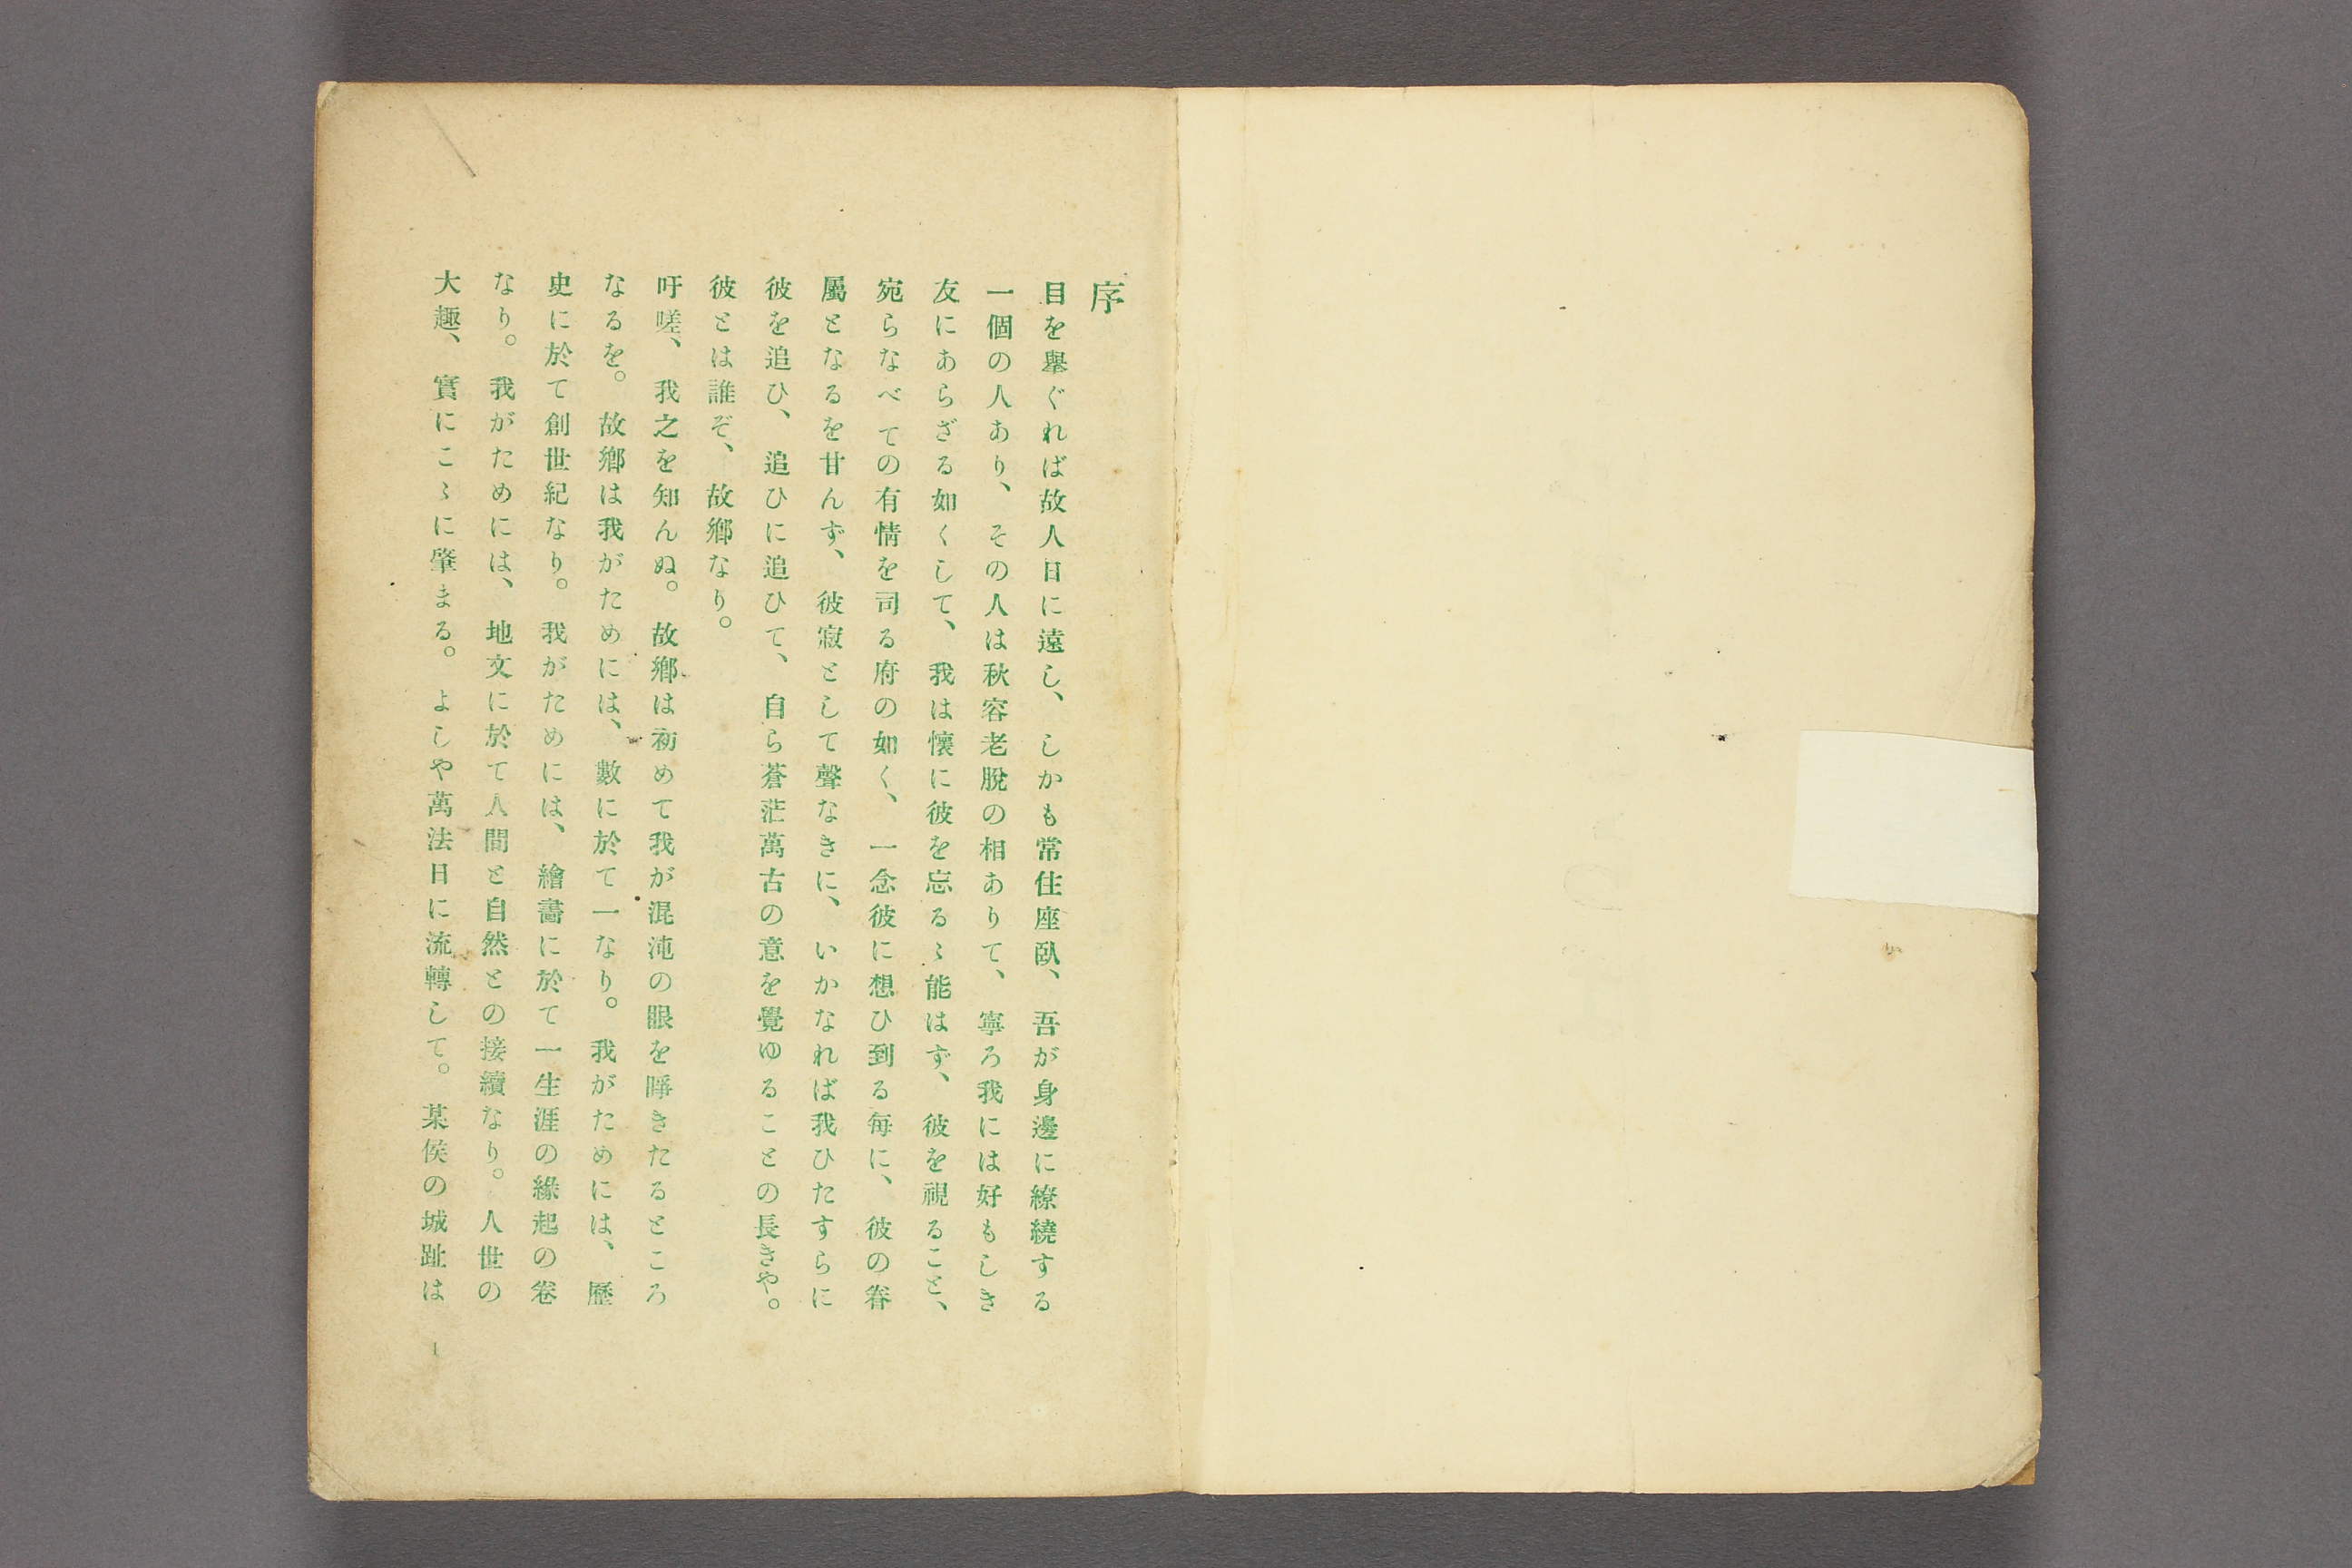 序
目を擧ぐれば故人日に遠し、しかも常住座臥、吾が身邊に繚繞する
一個の人あり、その人は秋容老脫の相ありて、寧ろ我には好もしき
友にあらざる如くして、我は懷に彼を忘るゝ能はず、彼を視ること、
宛らなべての有情を司る府の如く、一念彼に想ひ到る每に、彼の眷
屬となるを甘んず、彼寂として聲なきに、いかなれば我ひたすらに
彼を追ひ、追ひに追ひて、自ら蒼茫萬古の意を覺ゆることの長きや。
彼とは誰ぞ、故鄕なり。
吁嗟、我之を知んぬ。故鄕は初めて我が混沌の眼を睜きたるところ
なるを。故鄕は我がためには、數に於て一なり。我がためには、歷
史に於て創世紀なり。我がためには、繪畵に於て一生涯の緣起の卷
なり。我がためには、地文に於て人間と自然との接續なり。人世の
大趣、實にこゝに肇まる。よしや萬法日に流轉して。某侯の城趾は
1